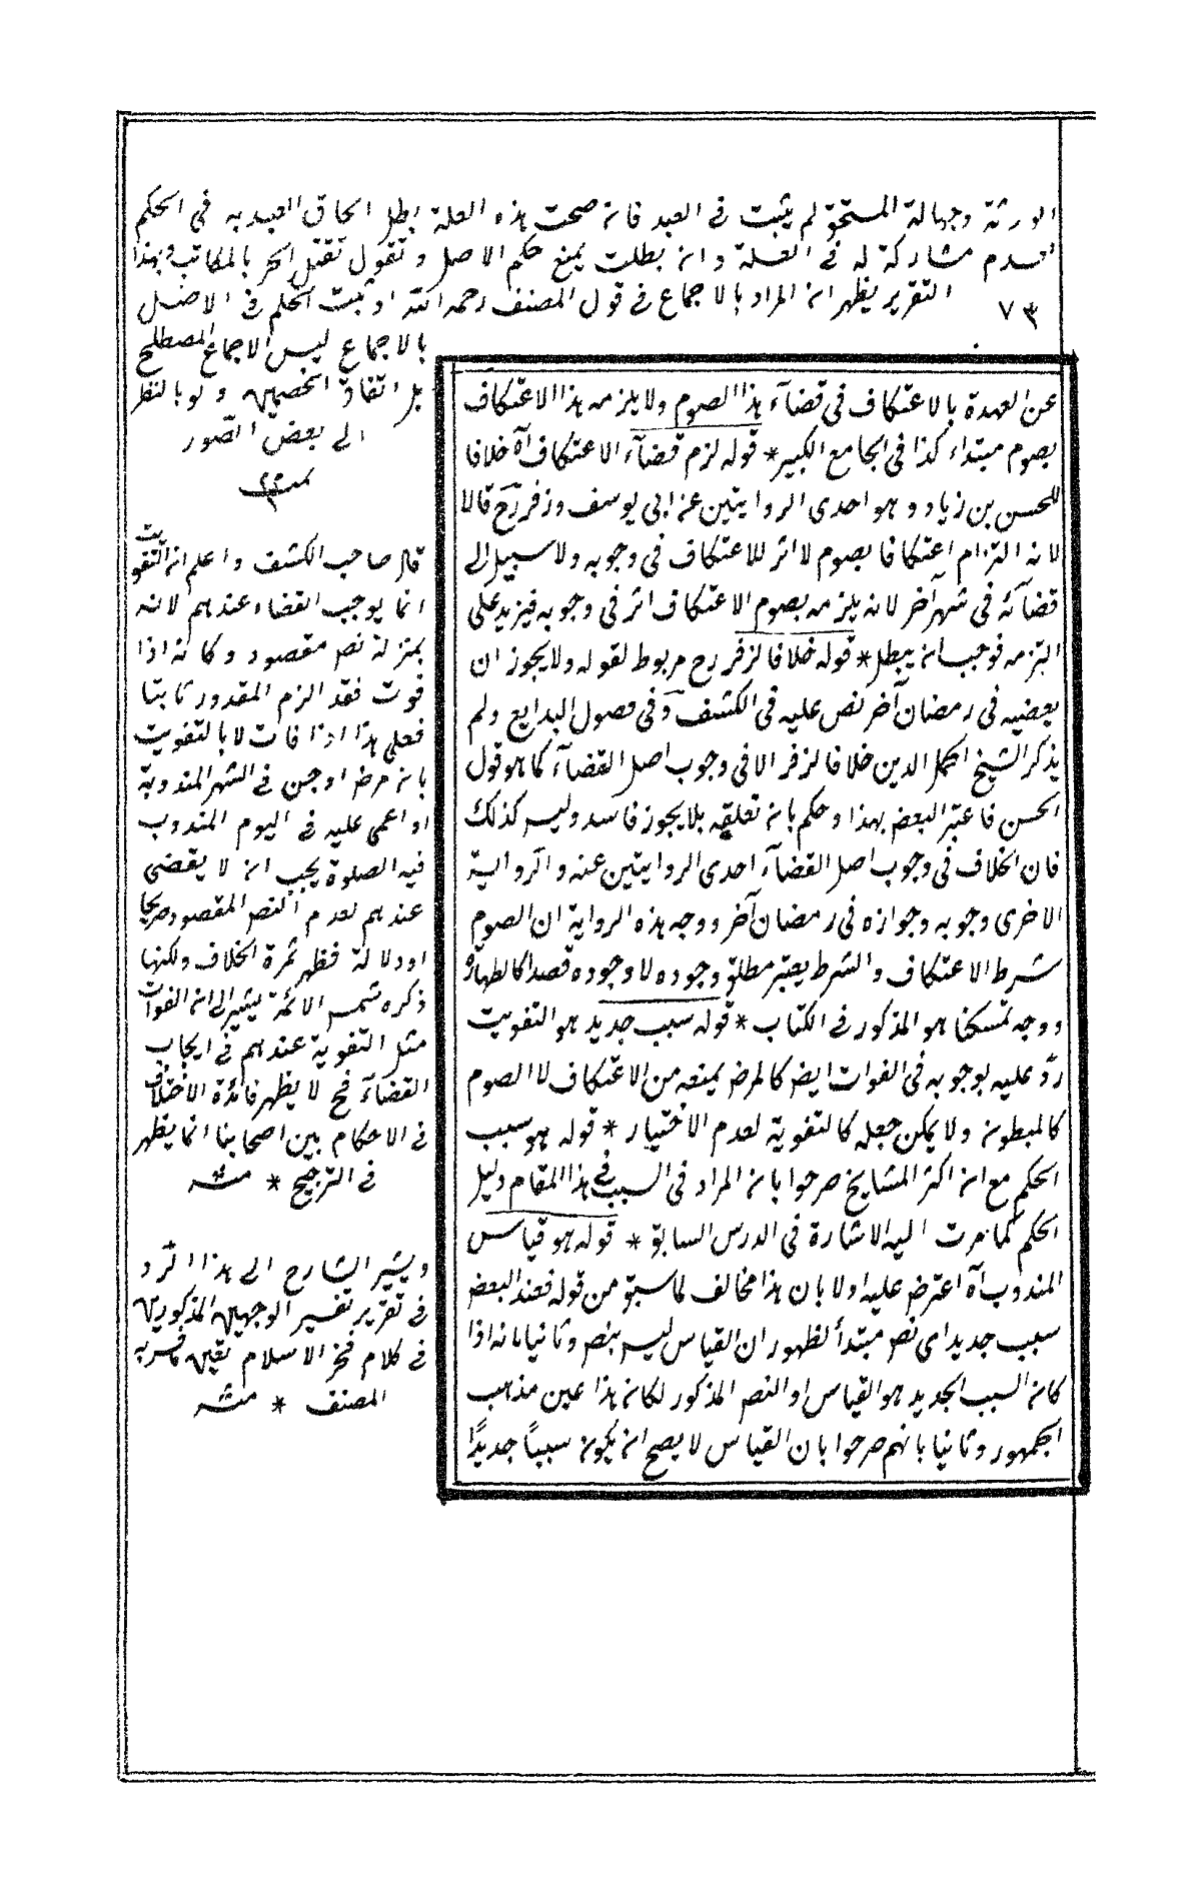 الورثة وجهالة المستحق لم يثبت فى العبد فان صحت هذه العلة بطل الحاق العبد به فى الحكم
لعدم مشاركة له فى العلة وان بطلت يمنع حكم الاصل وتقول تقتل الحر بالمكاتب وبهذا
التقرير يظهر ان المراد بالاجماع فى قول المصنف رحمه الله او ثبت الحكم فى الاصل
٧٣
بالاجماع ليس الاجماع المصطلح
بل اتفاق الخصمين ولو بالنظر
الى بعض الصور
عن العهدة بالاعتكاف فى قضآء هذا الصوم ولا يلزمه هذا الاعتكاف
بصوم مبتداء كذا فى الجامع الكبير * قوله لزم قضآء الاعتكاف آه خلافا
للحسن بن زياد وهو احدى الروايتين عن ابى يوسف وزفر رح قالا
لانه التزام اعتكافا بصوم لا اثر للاعتكاف فى وجوبه ولا سبيل الى
قضآئه فى شهر آخر لانه يلزمه بصوم الاعتكاف اثر فى وجوبه فيزيد على
التزمه فوجب ان يبطل * قوله خلافا لزفر رح مربوط لقوله ولا يجوز ان
يعضيه فى رمضان آخر نص عليه فى الكشف وفى فصول البدايع ولم
يذكر الشيخ اكمل الدين خلافا لزفر الا فى وجوب اصل القضآء كما هو قول
الحسن فاعتبر البعض بهذا وحكم بان تعلقه بلا يجوز فاسد وليس كذلك
فان الخلاف فى وجوب اصل القضآء احدى الروايتين عنه والرواية
الاخرى وجوبه وجوازه فى رمضان آخر ووجه هذه الرواية ان الصوم
شرط الاعتكاف والشرط يعتبر مطلق وجوده لا وجوده قصدا كالطهارة
ووجه تمسكنا هو المذكور فى الكتاب * قوله سبب جديد هو التفويت
ردّ عليه بوجوبه فى الفوات ايض كالمرض يمنعه من الاعتكاف لا الصوم
كالمبطون ولا يمكن جعله كالتفوية لعدم الاختيار * قوله هو سبب
الحكم مع ان اكثر المشايخ صرحوا بان المراد فى السبب فى هذا المقام دليل
الحكم كما مرت اليه الاشارة فى الدرس السابق * قوله هو قياس
المندوب آه اعترض عليه اولا بان هذا مخالف لما سبق من قوله فعند البعض
سبب جديد اى نص مبتدأ لظهور ان القياس ليس بنص وثانيا بانه اذا
كان السبب الجديد هو القياس او النص المذكور لكان هذا عين مذهب
الجمهور وثانيا بانهم صرحوا بان القياس لا يصح ان يكون سببا جديدًا
قال صاحب الكشف واعلم ان التفويت
انما يوجب القضاء عندهم لانه
بمنزلة نص مقصود وكانه اذا
فوت فقد الزم المقدور ثابتا
فعلى هذا اذا فات لا بالتفويت
بان مرض او جن فى الشهر المندوبة
او اعمى عليه فى اليوم المندوب
فيه الصلوة يجب ان لا يقضى
عندهم لعدم النص المقصود صريحا
او دلالة فظهر ثمرة الخلاف ولكنها
ذكره شمس الائمة يشير الى ان الفوات
مثل التفوية عندهم فى ايجاب
القضآء فح لا يظهر فائدة الاختلاف
فى الاحكام بين اصحابنا انما يظهر
فى الترجيح * منه
ويشير الشارح الى هذا الرد
فى تقرير تفسير الوجهين المذكورين
فى كلام فخر الاسلام تعين فسربه
المصنف * منه